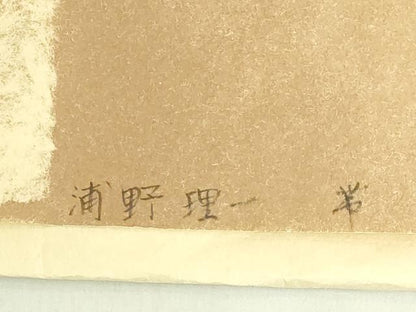 浦野理一 帯